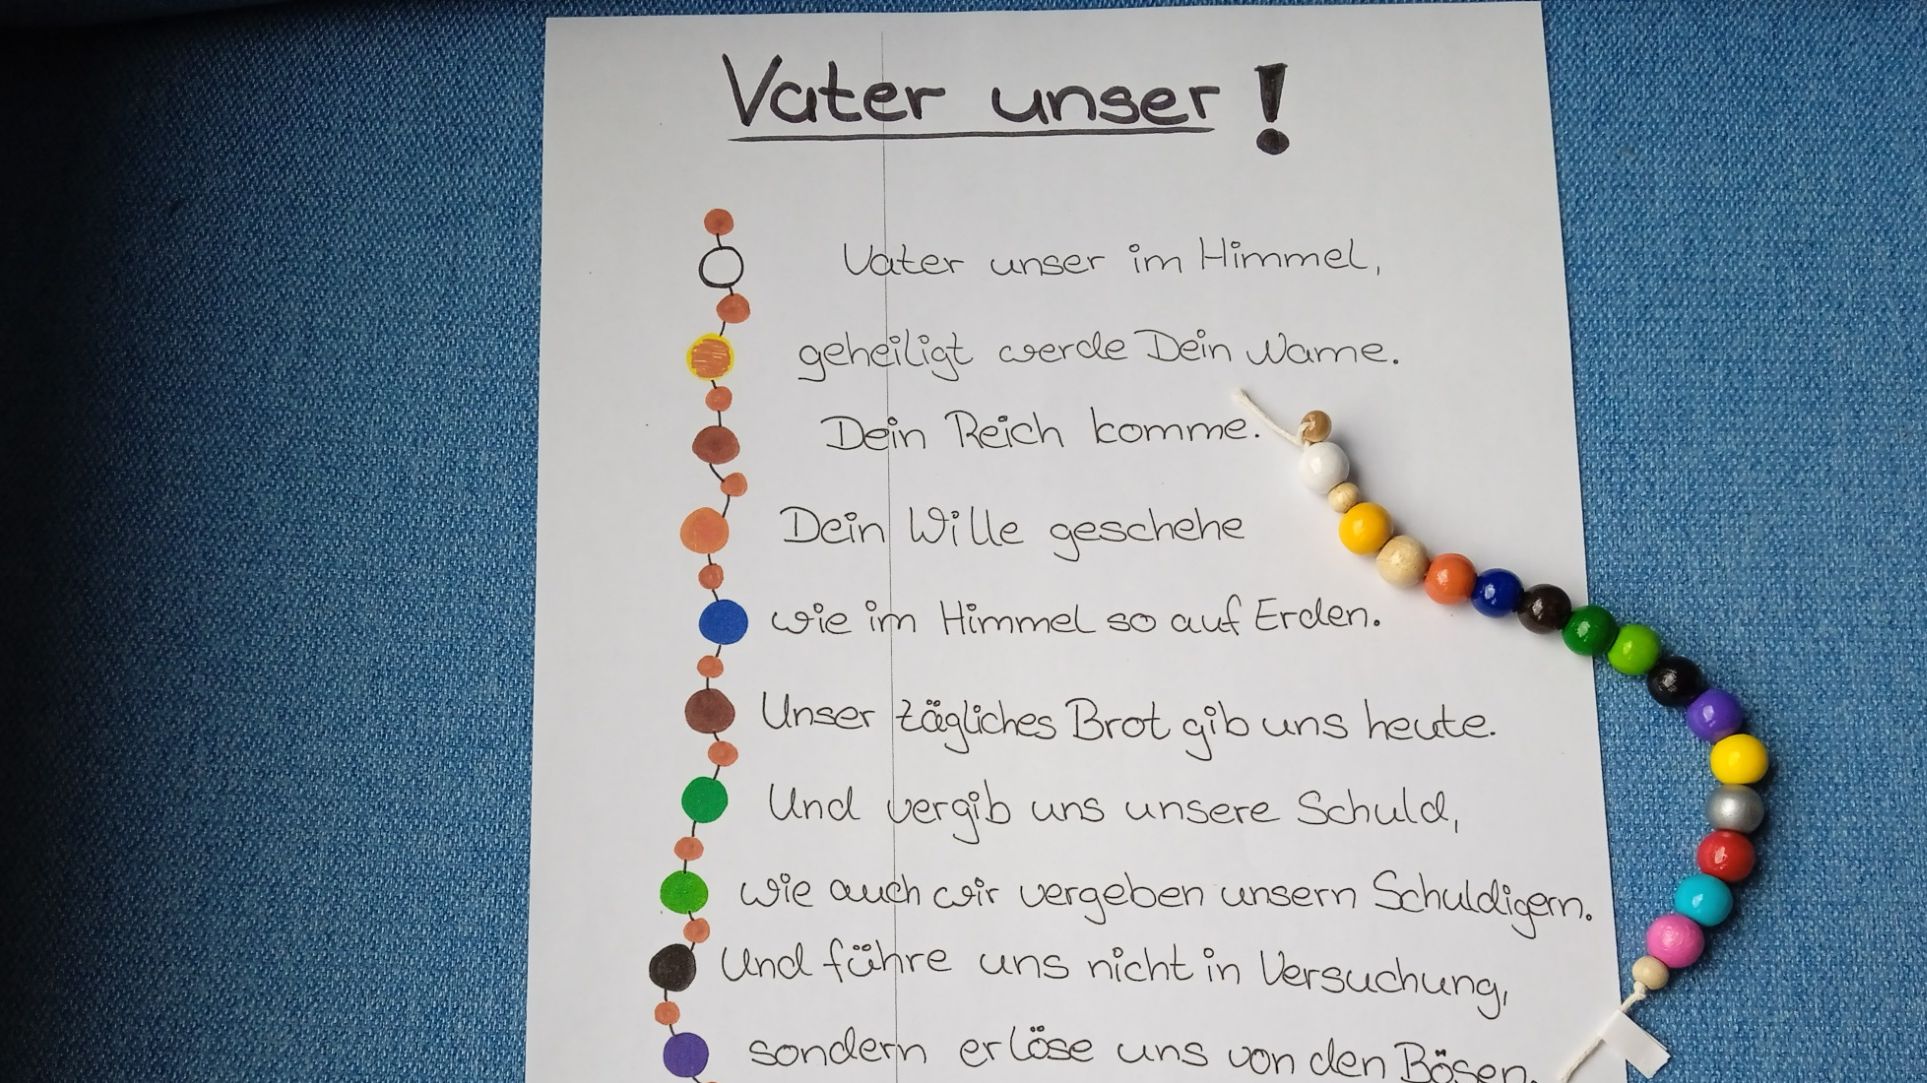 Vater unser!
Vater unser im Himmel,
geheiligt werde Dein Name.
Dein Reich komme.
Dein Wille geschehe
wie im Himmel so auf Erden.
Unser tägliches Brot gib uns heute.
Und vergib uns unsere Schuld,
wie auch wir vergeben unsern Schuldigern.
Und führe uns nicht in Versuchung,
sondern erlöse uns von den Bösen.